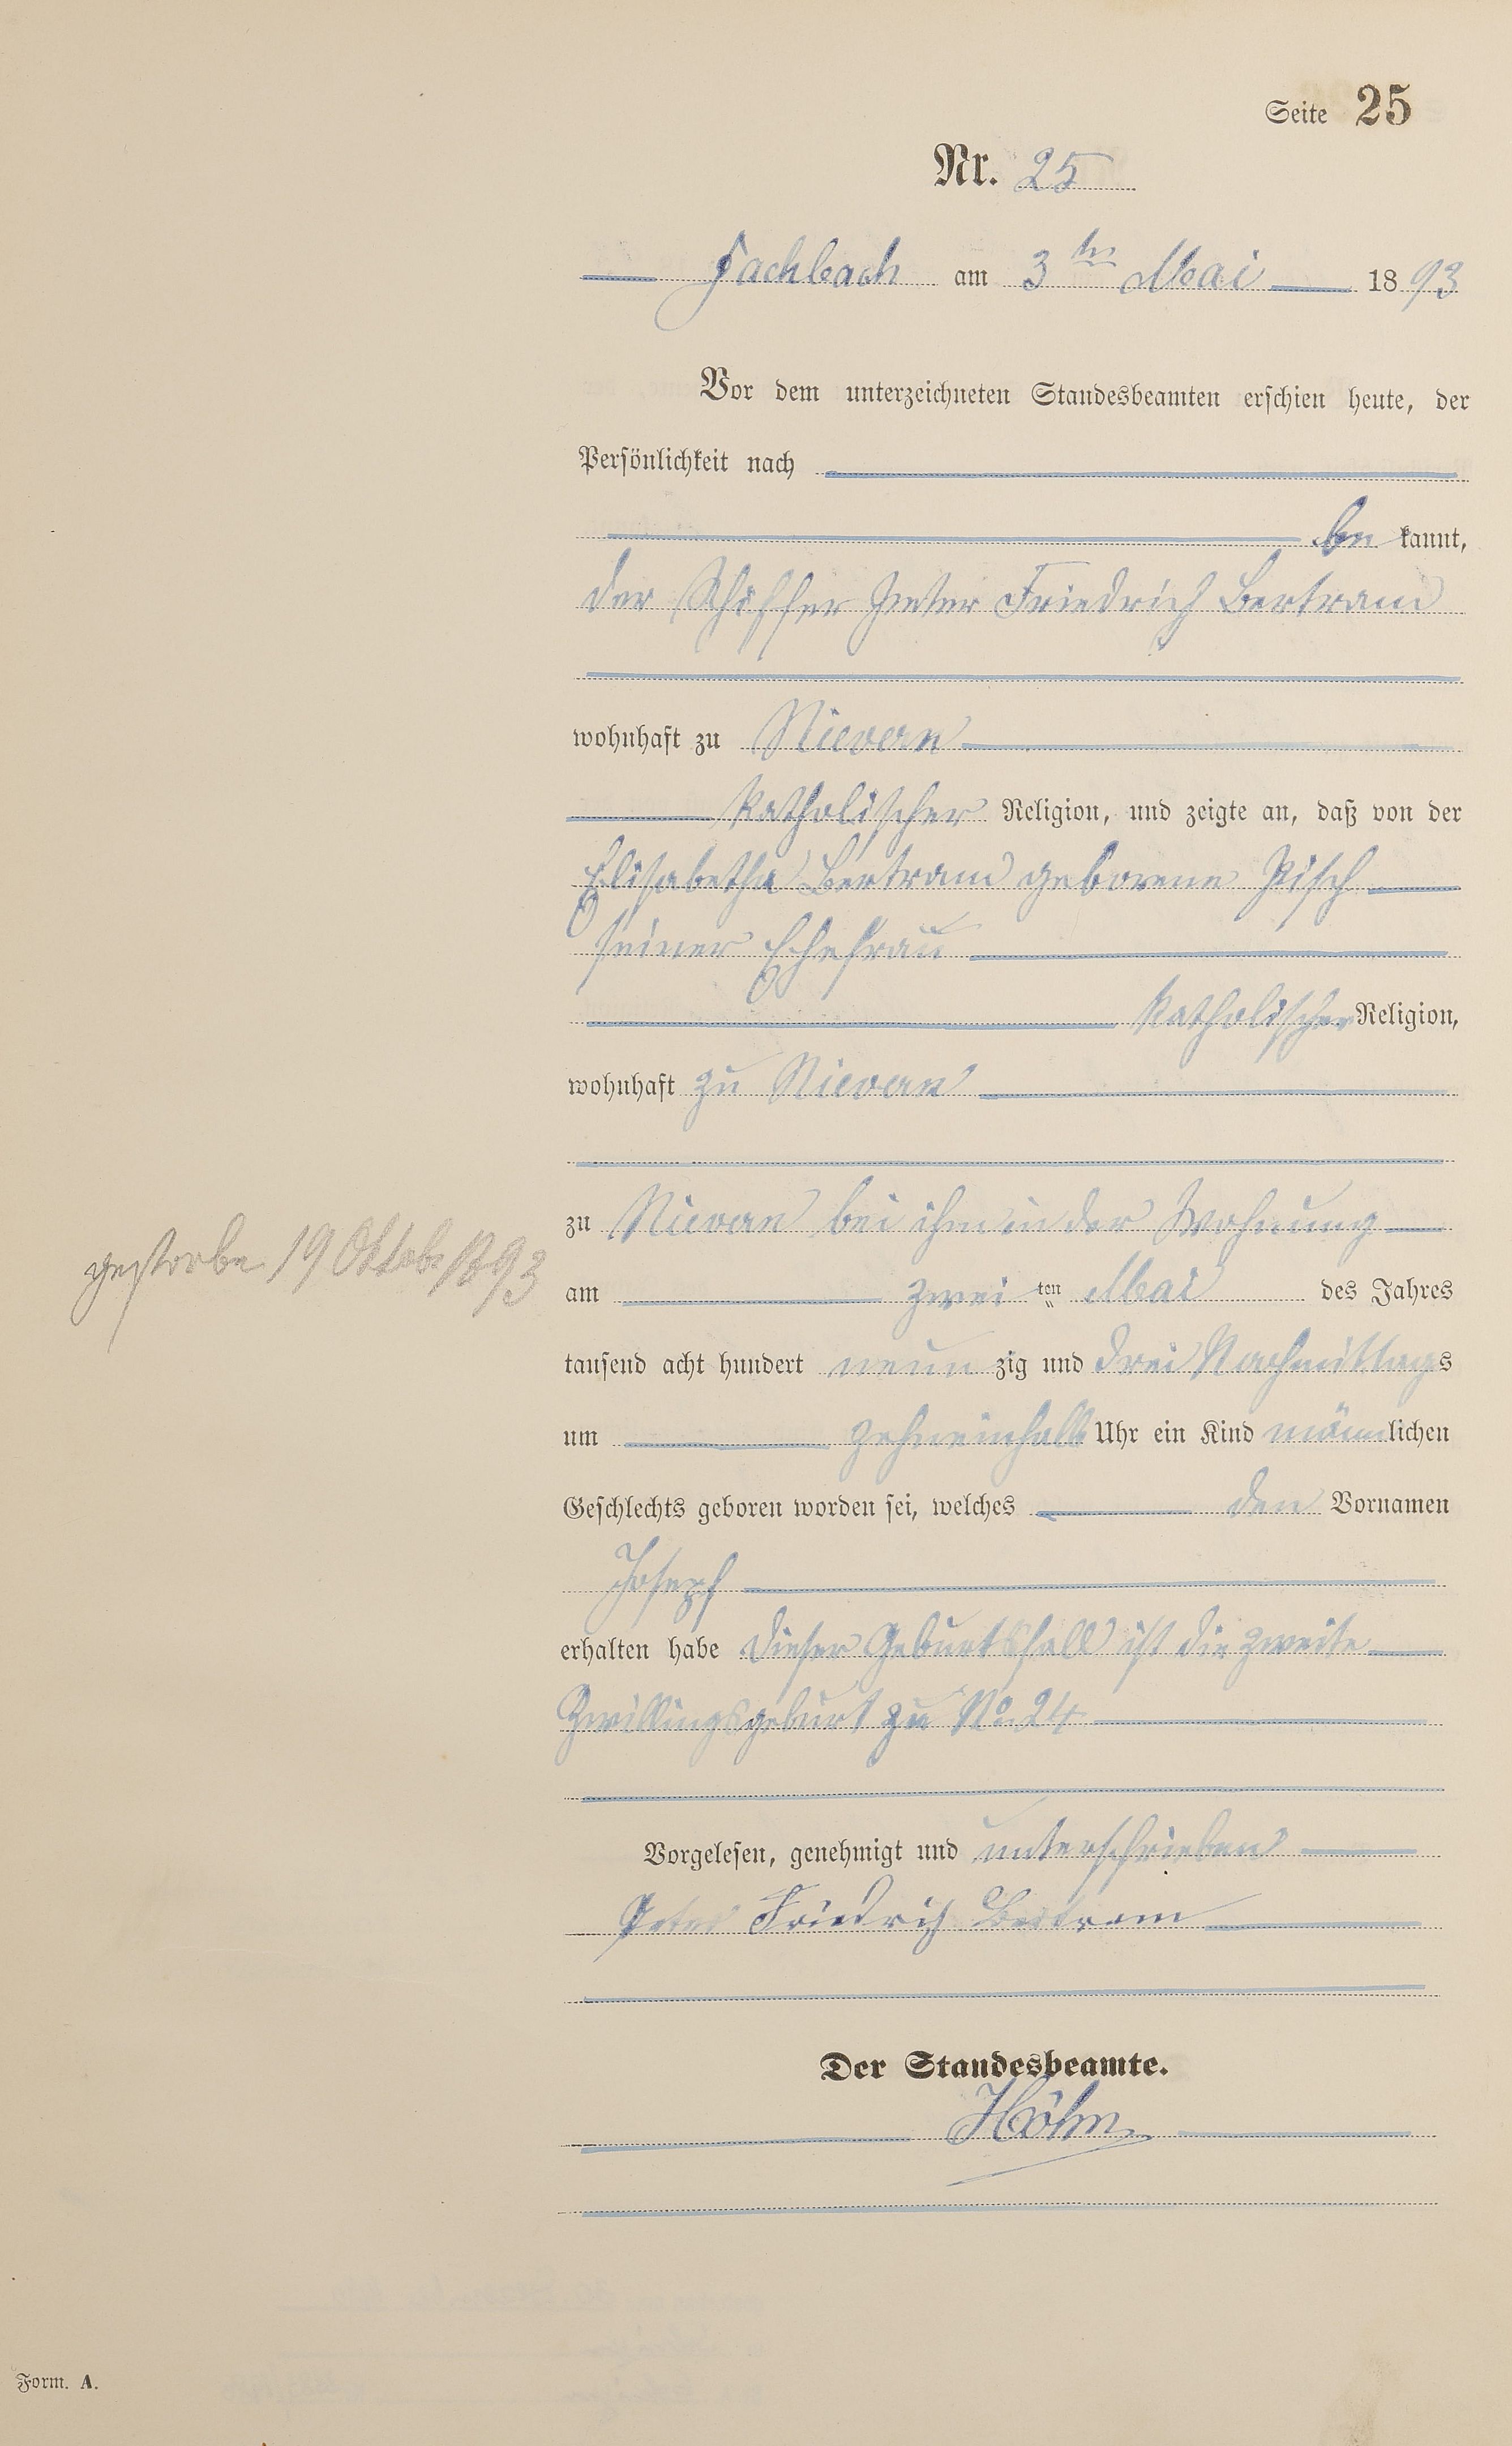 Seite 25
Nr. 25
Fachbach am 3ten Mai 1893
Vor dem unterzeichneten Standesbeamten erschien heute, der
Persönlichkeit nach
be kannt,
der Schiffer Peter Friedrich Bertram
wohnhaft zu Nievern
katholischer Religion, und zeigte an, daß von der
Elisabetha Bertram geborene Pisch
seiner Ehefrau
katholischer Religion,
wohnhaft zu Nievern
zu Nievern bei ihm in der Wohnung
gestorbe 19 Oktob 1893
am zwei ten Mai des Jahres
tausend acht hundert neun zig und drei Nachmittags
um zehneinhalb Uhr ein Kind männlichen
Geschlechts geboren worden sei, welches den Vornamen
Joseph
erhalten habe dieser Geburtsfall ist die zweite
Zwillingsgeburt zu No 24
Vorgelesen, genehmigt und unterschrieben
Peter Friedrich Bertram
Der Standesbeamte.
Höhn
Form. A.